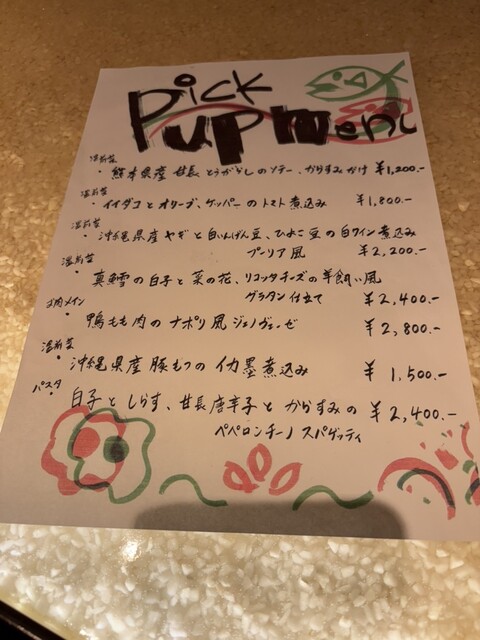 Pick
Pup menu
温前菜
・熊本県産 甘長とうがらしのソテー、からすみかけ ¥1,200.-
温前菜
・イイダコとオリーブ、ケッパーのトマト煮込み ¥1,800.-
温前菜
・沖縄県産ヤギと白いんげん豆、ひよこ豆の白ワイン煮込み
プーリア風 ¥2,200.-
温前菜
・真鱈の白子と菜の花、リコッタチーズの羊飼い風
グラタン仕立て ¥2,400.-
お肉メイン
・鴨もも肉のナポリ風ジェノヴェーゼ ¥2,800.-
温前菜
・沖縄県産豚もつのイカ墨煮込み ¥1,500.-
パスタ
・白子としらす、甘長唐辛子とからすみの ¥2,400.-
ペペロンチーノスパゲッティ